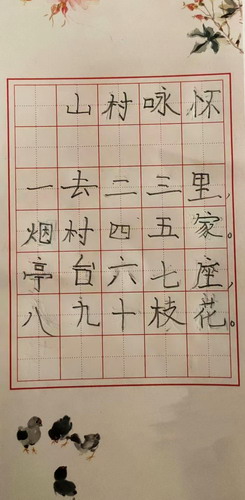 山村咏怀
一去二三里,
烟村四五家。
亭台六七座,
八九十枝花。